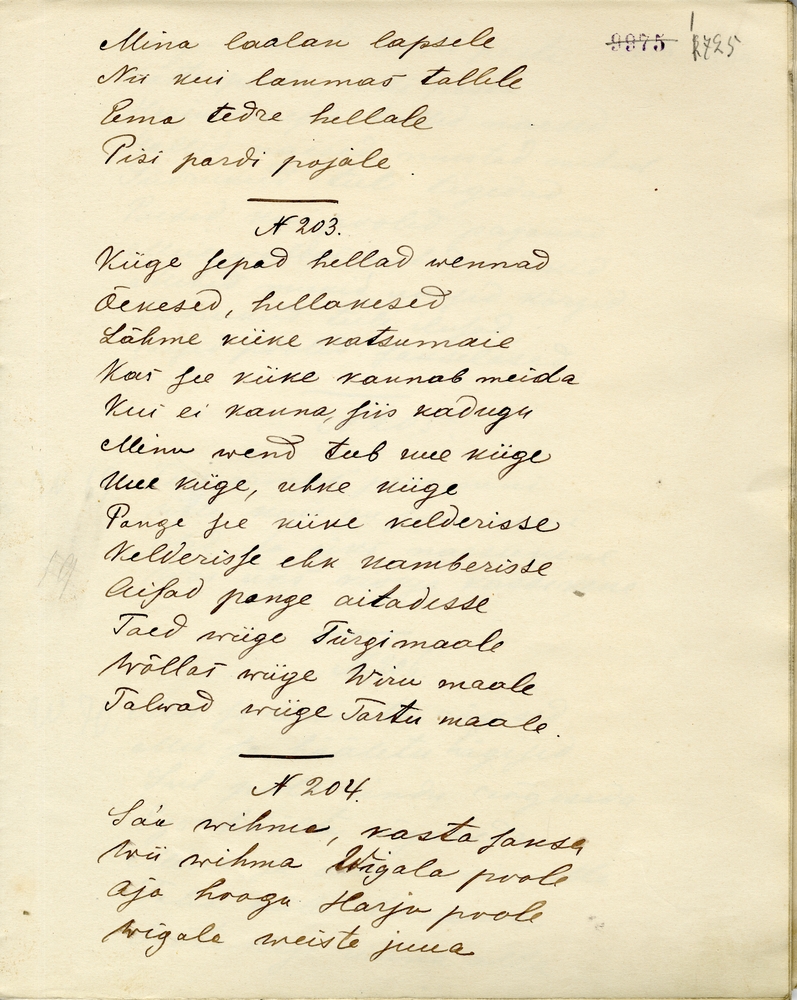 Mina laalan lapsele
Nii kui lammas tallele
Ema tedre hellale
Pisi pardi pojale.
9975 2725
N 203.
Kiige sepad hellad wennad
Öekesed, hellakesed
Lähme kiike katsumaie
Kas see kiike kannab meida
Kui ei kanna, siis kadugu
Minu wend teeb uue kiige
Uue kiige, uhke kiige
Pange see kiike kelderisse
Kelderisse ehk kamberisse
Aisad pange aitadesse
Taed wiige Türgimaale
Wõllas wiige Wiru maale
Talwad wiige Tartu maale.
N 204.
Sáa wihma, kasta
Wii wihma Wigala poole
Aja hoogu Harju poole
Wigala weiste juua